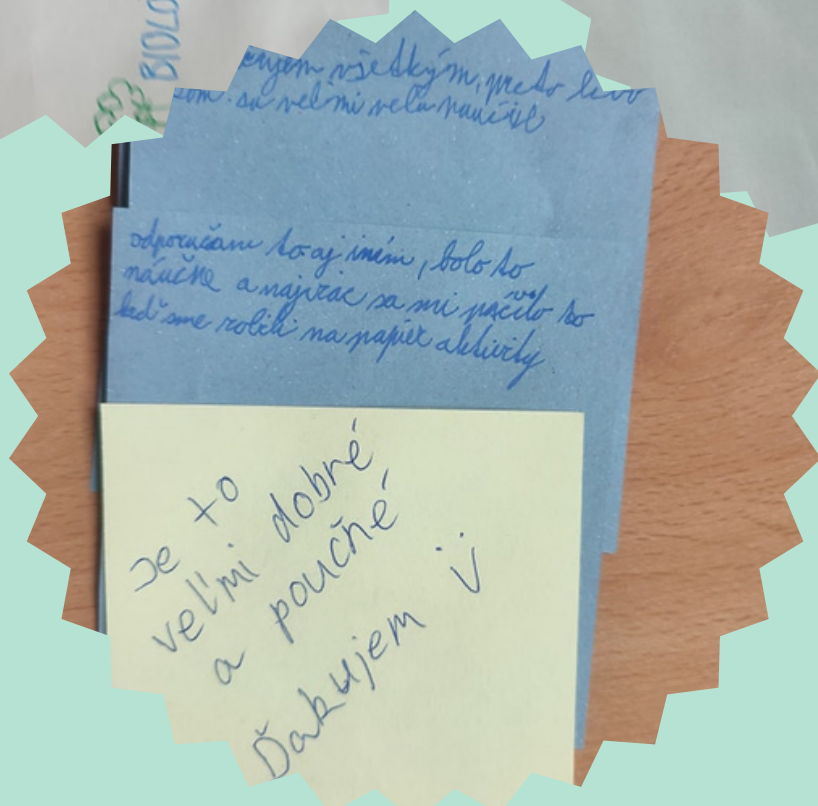 BIOLO
ďakujem všetkým, preto lebo
som sa veľmi veľa naučil
odporúčam to aj iným, bolo to
náučne a najviac sa mi páčilo to
keď sme robili na papier aktivity
Je to
veľmi dobré
a poučné
Ďakujem :)